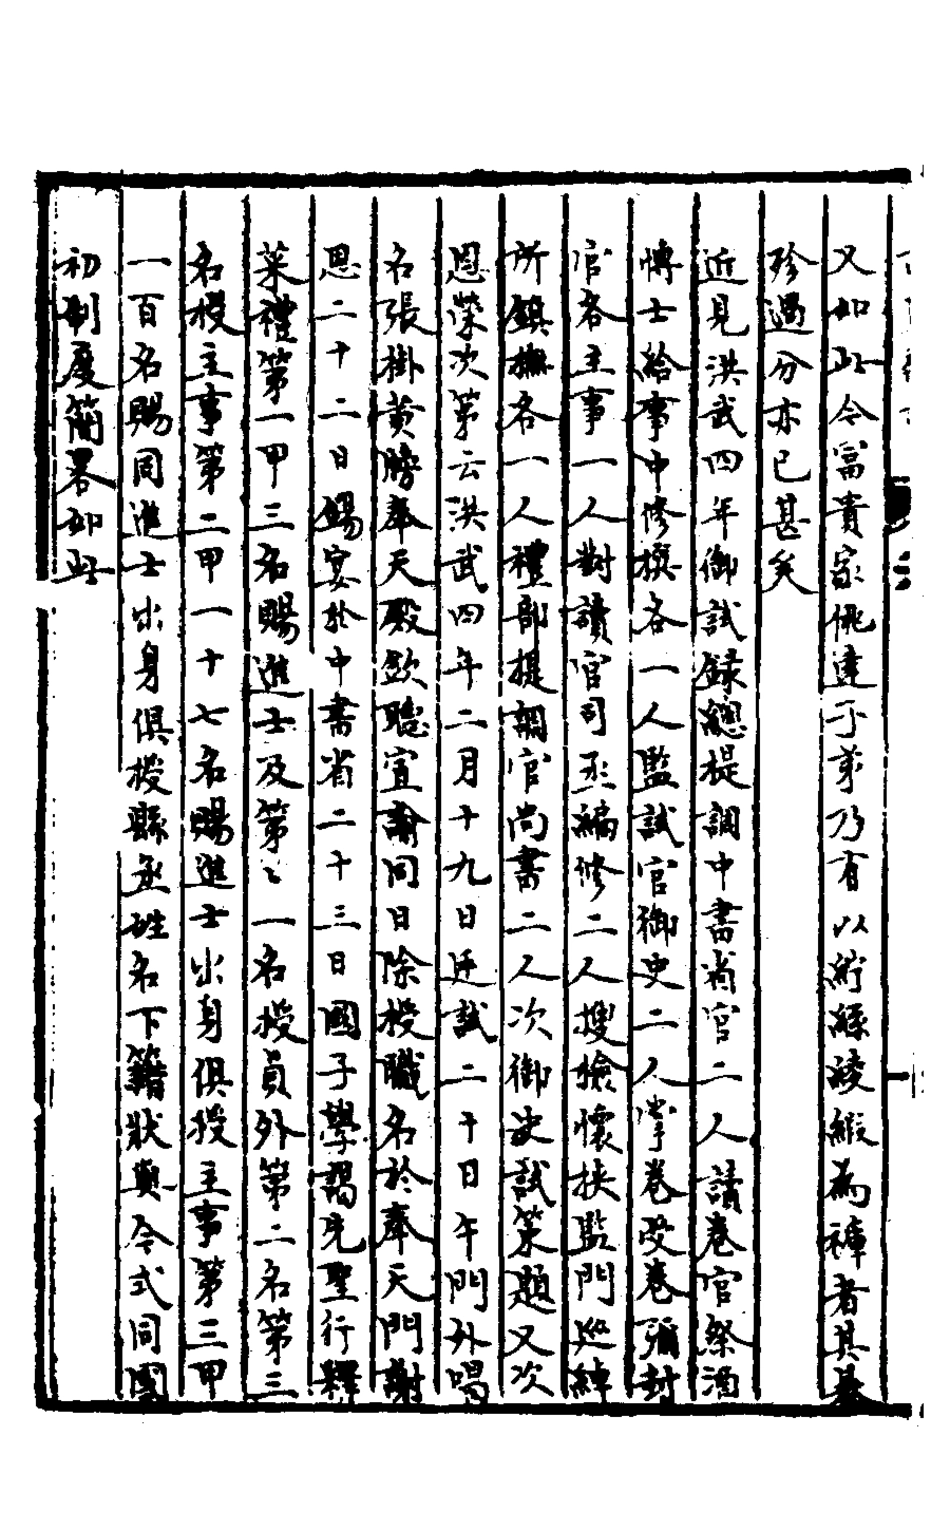 又如此今富貴家佻達子弟乃有以紵絲綾緞為褲者其暴
殄過分亦已甚矣
近見洪武四年御試録總提調中書省官二人讀卷官祭酒
博士給事中修撰各一人監試官御史二人掌卷受卷彌封
官各主事一人對讀官司丞編修二人搜檢懷挾監門巡綽
所鎮撫各一人禮部提調官尚書二人次御史試策題又次
恩榮次第云洪武四年二月十九日廷試二十日午門外唱
名張掛黃牓奉天殿欽聽宣諭同日除授職名於奉天門謝
恩二十二日錫宴於中書省二十三日國子學謁先聖行釋
菜禮第一甲三名賜進士及第々一名授員外第二名第三
名授主事第二甲一十七名賜進士出身俱授主事第三甲
一百名賜同進士出身俱授縣丞姓名下籍狀與今式同國
初制度簡畧如此